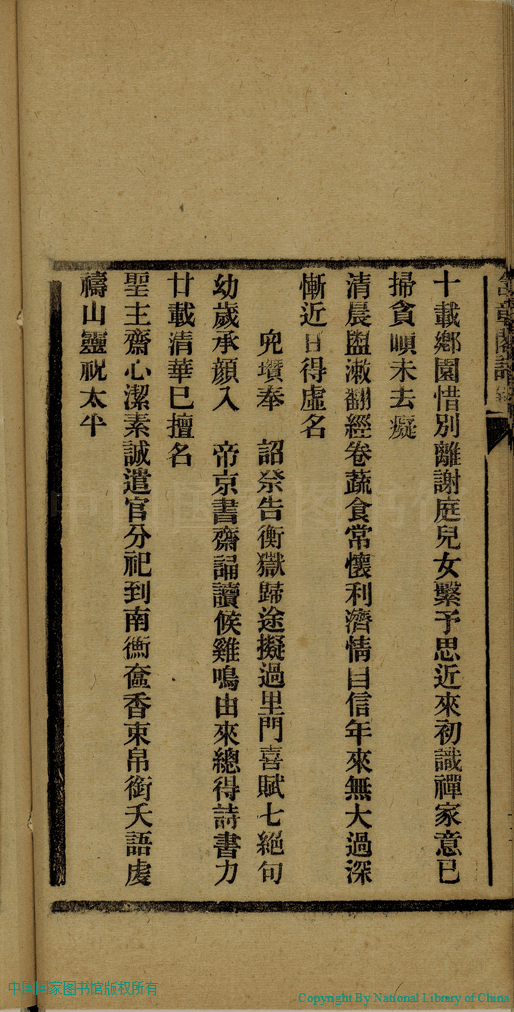 十載鄉園惜別離謝庭兒女繫予思近來初識禪家意已
掃貪嗔未去癡
清晨盥漱翻經卷蔬食常懷利濟情自信年來無大過深
慚近日得虛名
兜瓚奉 詔祭告衡嶽歸途擬過里門喜賦七絕句
幼歲承顏入 帝京書齋誦讀候雞鳴由來總得詩書力
廿載清華已擅名
聖主齋心潔素誠遣官分祀到南衡奩香束帛銜天語虔
禱山靈祝太平
中国国家图书馆版权所有
Copyright By National Library of China